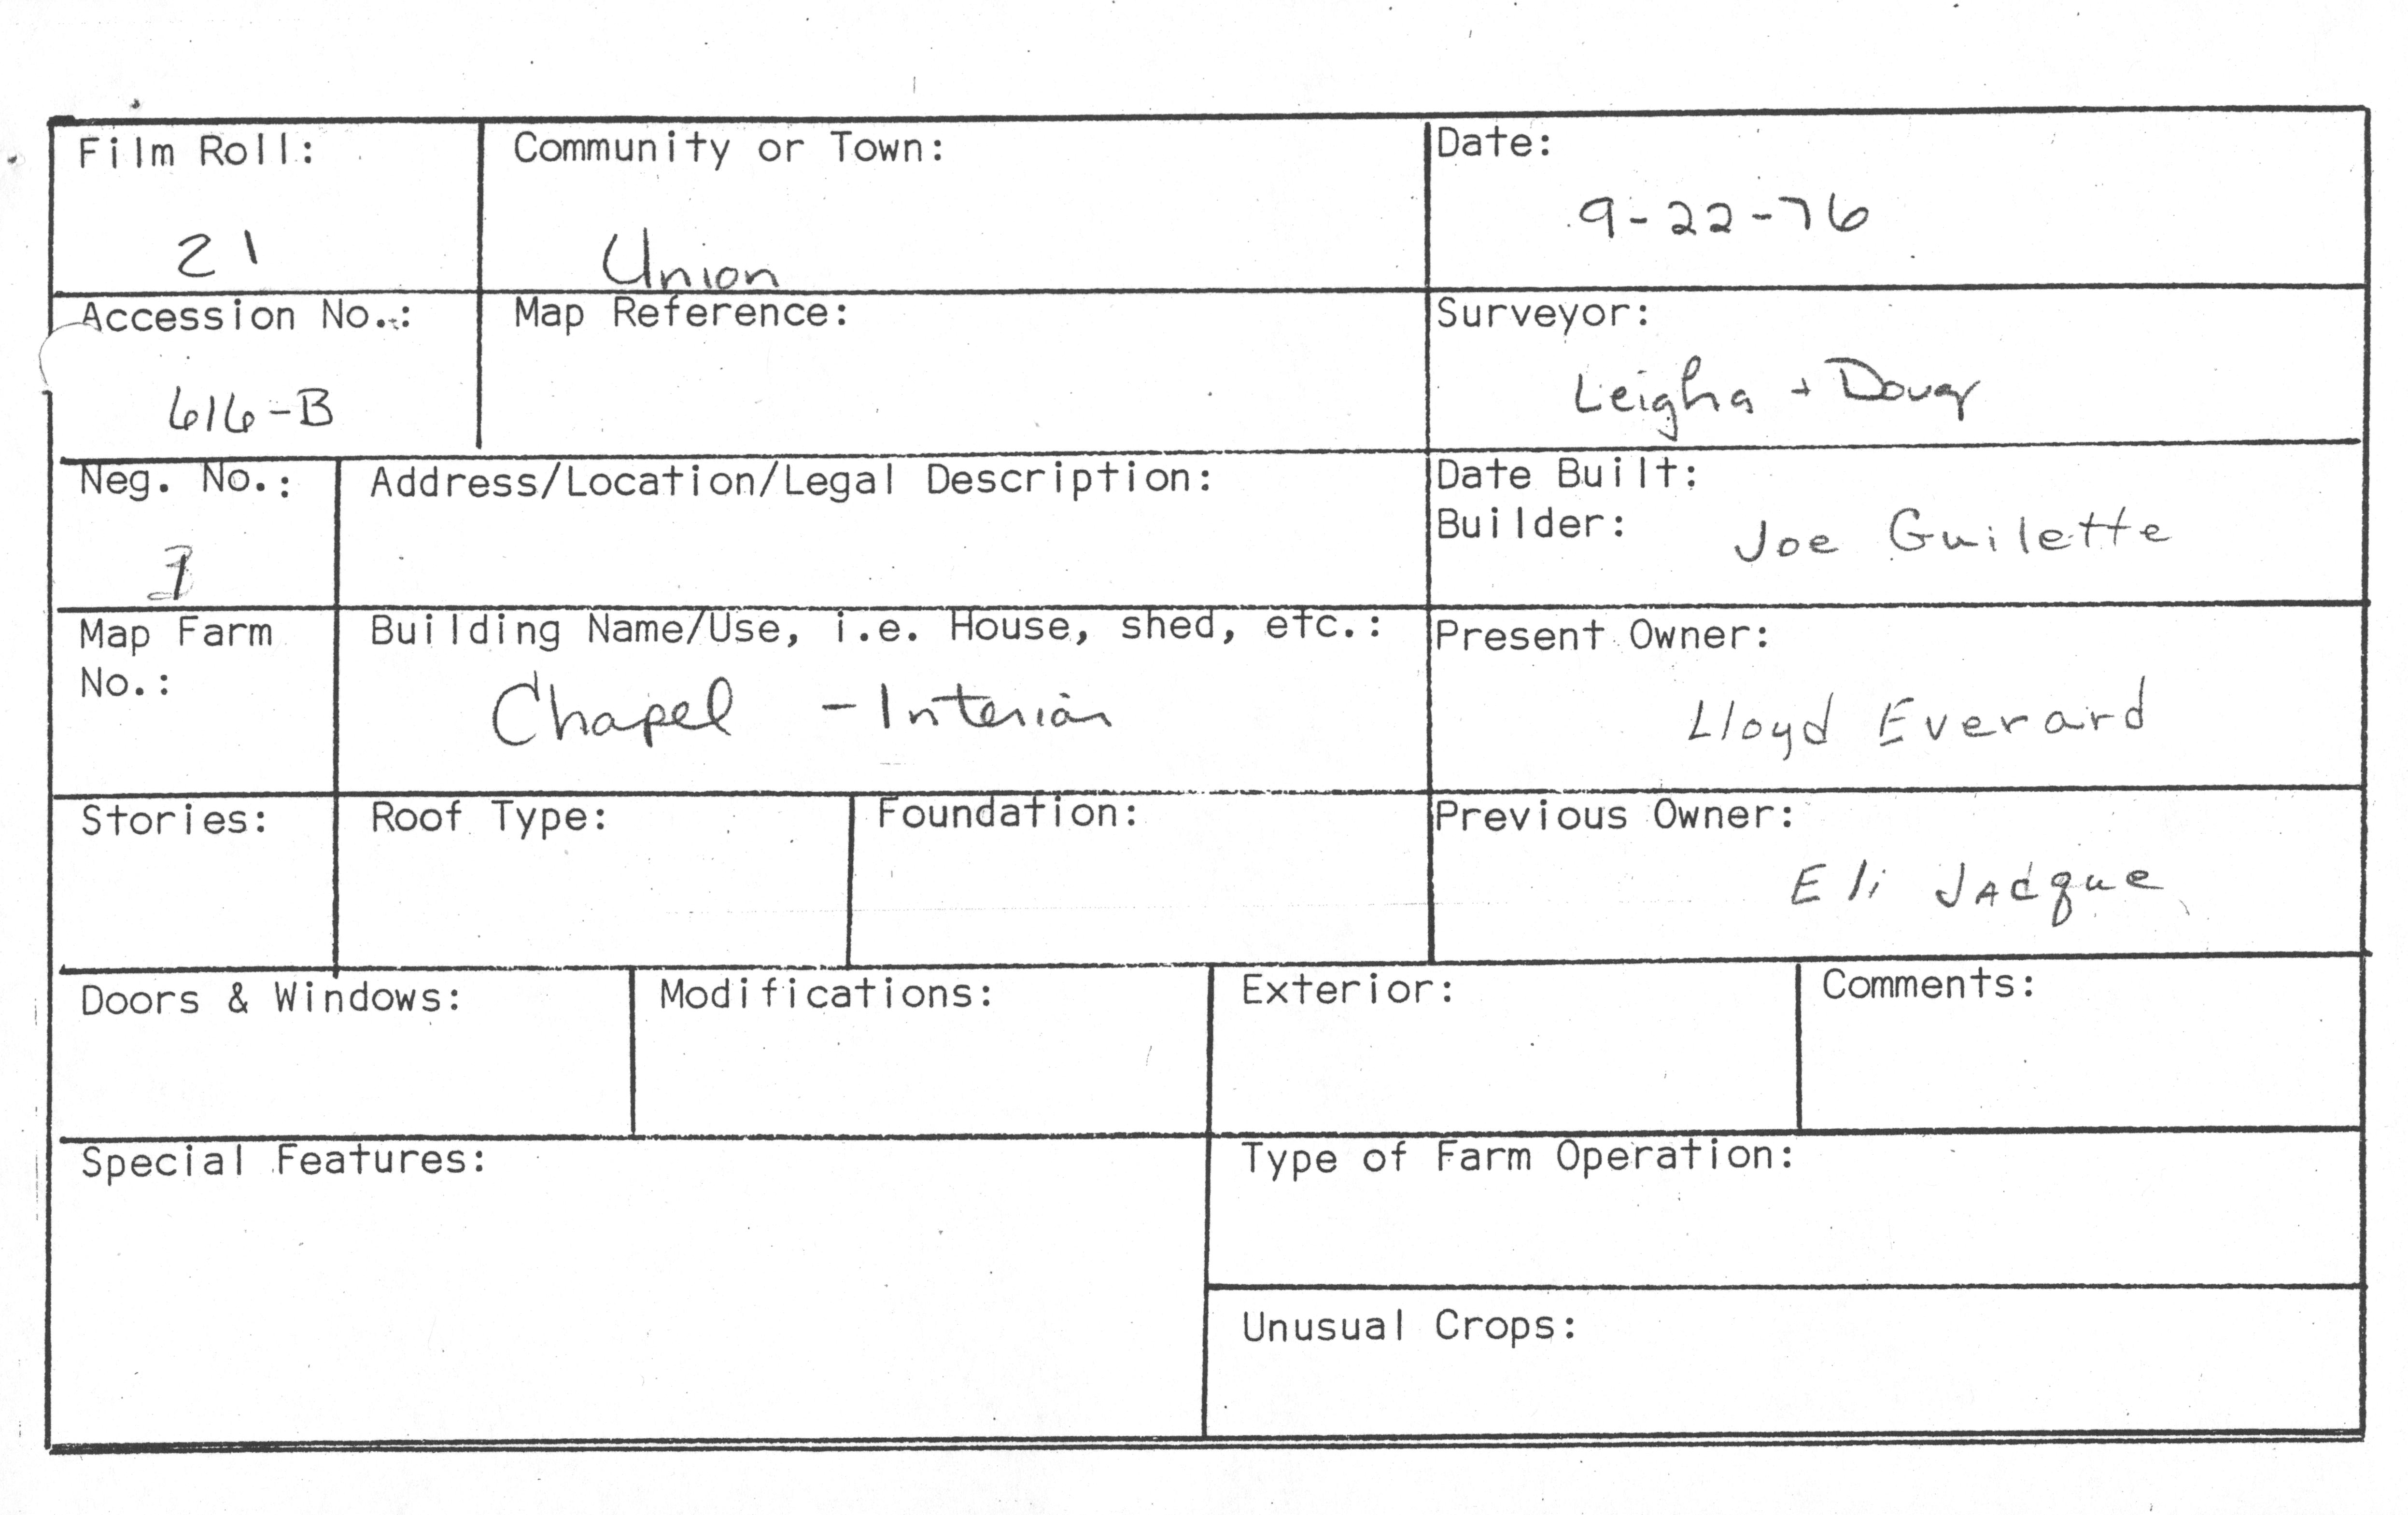 Film Roll:
21
Community or Town:
Union
Date:
9-22-76
Accession No.:
616-B
Map Reference:
Surveyor:
Leigha + Doug
Neg. No.:
Address/Location/Legal Description:
Date Built:
Builder: Joe Guilette
Map Farm
No.:
Building Name/Use, i.e. House, shed, etc.:
Chapel - Interior
Present Owner:
Lloyd Everard
Stories:
Roof Type:
Foundation:
Previous Owner:
Eli Jacque
Doors & Windows:
Modifications:
Exterior:
Comments:
Special Features:
Type of Farm Operation:
Unusual Crops: